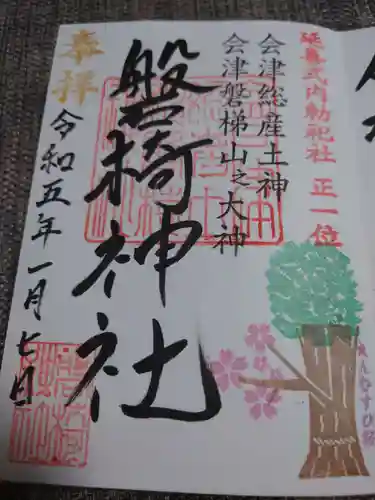 延喜式内勅祀社 正一位
会津総産土神
会津磐梯山之大神
奉拝
磐椅神社
令和五年一月七日
えんむすび桜